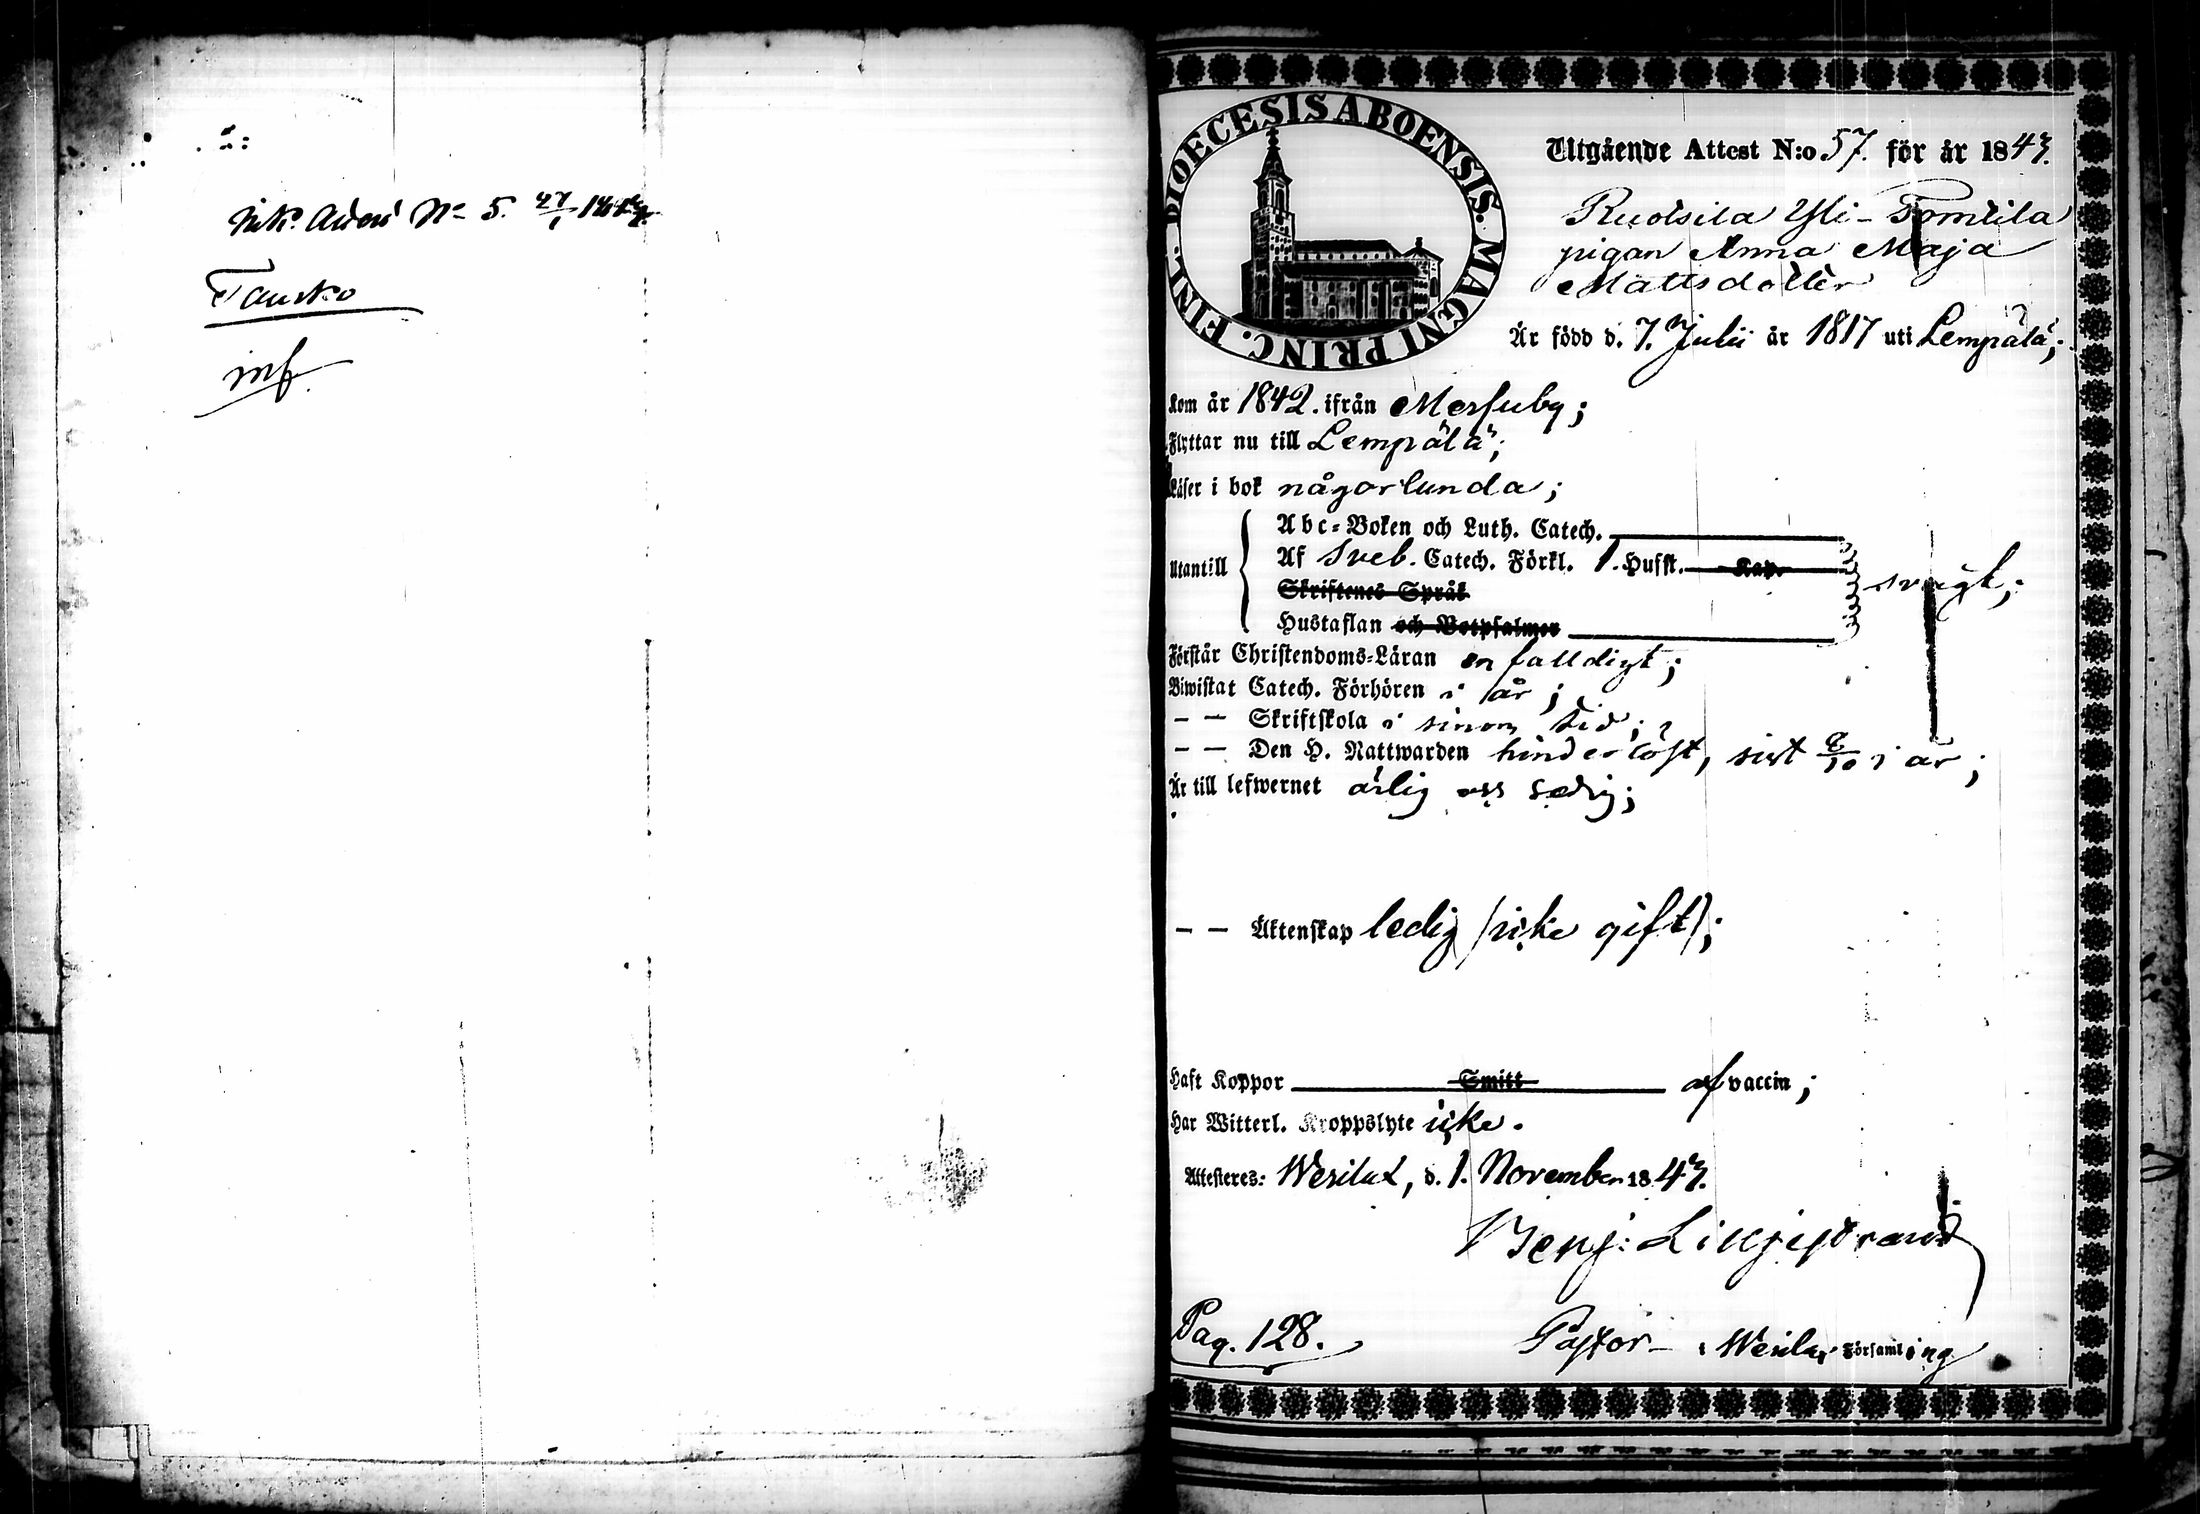 Ink. Attest No 5. 27/1 1847.
Tausko
inf.
DIOECESIS ABOENSIS. MAGNI PRINC. FINL.
Utgående Attest N:o 57. för år 1847.
Ruotsila Yli-Tomtila
pigan Anna Maja
Mattsdotter
Är född d. 7. Julii år 1817 uti Lempälä;
Kom år 1842. ifrån Messuby;
Flyttar nu till Lempälä;
Läser i bok någorlunda;
Utantill
Abc-Boken och Luth. Catech.
Af Sveb. Catech. Förkl. 1. Husst. Kap.
Skriftenes Språk
Hustaflan och Botpsalmer
svagt;
Förstår Christendoms-Läran enfalldigt;
Biwistat Catech. Förhören i år;
— — Skriftskola i sinom tid;
— — Den H. Nattwarden hinderlöst, sist /10 i år;
Är till lefwernet ärlig och sedig;
— — Äktenskap ledig (icke gift);
Haft Koppor Smitt af vaccin;
Har Witterl. Kroppslyte icke.
Attesteres: Wesilax, d. 1. November 1847.
Benj: Liljestrand
Pag. 128.
Pastor i Wesilax Församling